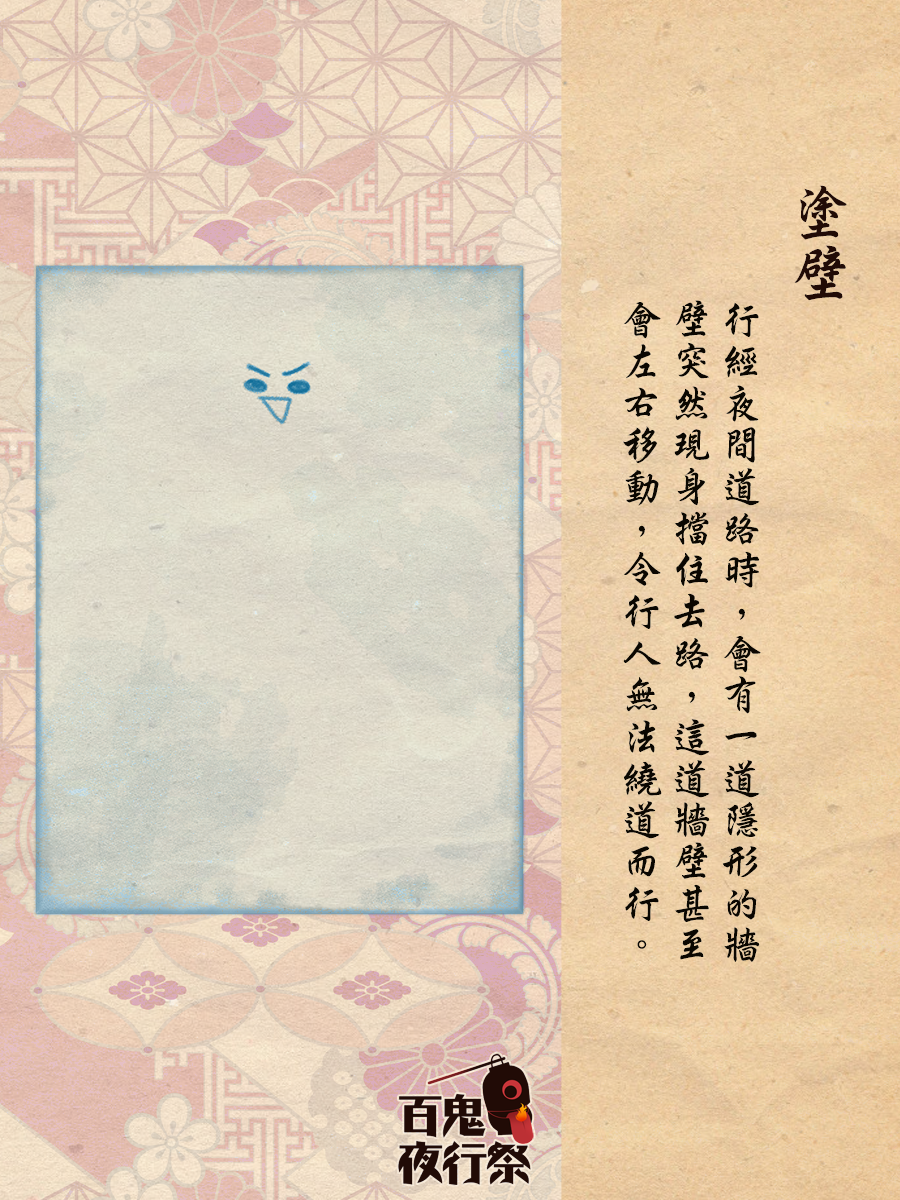 塗壁
行經夜間道路時，會有一道隱形的牆
壁突然現身擋住去路，這道牆壁甚至
會左右移動，令行人無法繞道而行。
百鬼
夜行祭